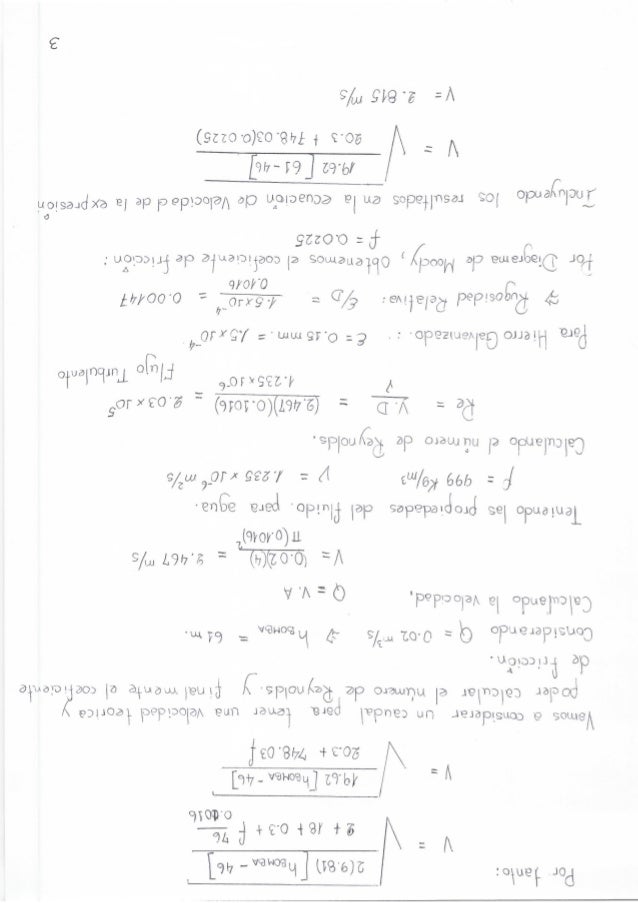 Por tanto:
V = √( 2(9.81) [hBOMBA - 46] / 2 + 18 + 0.3 + f 76/0.1016 )
V = √( 19.62 [hBOMBA - 46] / 20.3 + 748.03 f )
Vamos a considerar un caudal para tener una velocidad teorica y
poder calcular el número de Reynolds. y finalmente el coeficiente
de fricción.
Considerando Q = 0.02 m³/s ⇒ hBOMBA = 61 m.
Calculando la velocidad, Q = V. A
V = (0.02)(4) / π(0.1016)² = 2.467 m/s
Teniendo las propiedades del fluido. para agua.
ρ = 999 Kg/m³ ν = 1.235 x 10⁻⁶ m²/s
Calculando el número de Reynolds.
Re = V. D / ν = (2.467)(0.1016) / 1.235 x 10⁻⁶ = 2.03 x 10⁵
Flujo Turbulento
Para Hierro Galvanizado. : ε = 0.15 mm. = 1.5 x 10⁻⁴
⇒ Rugosidad Relativa: ε/D = 1.5 x 10⁻⁴ / 0.1016 = 0.00147
Por Diagrama de Moody, obtenemos el coeficiente de fricción:
f = 0.0225
Incluyendo los resultados en la ecuación de Velocidad de la expresión
V = √( 19.62 [61 - 46] / 20.3 + 748.03(0.0225) )
V = 2.815 m/s
3